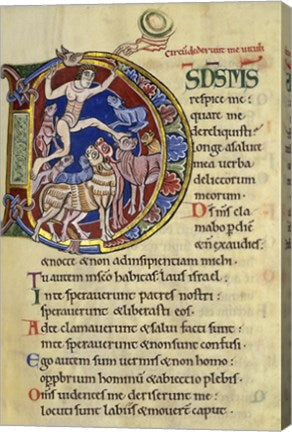 circūdederunt me uituli
DSDSMS
respice me :
quare me
dereliquisti :
Longe asalute
mea uerba
delictorum
meorum ·
Ds ms cla
mabo p diē
& n̄ exaudies :
& nocte & non adinsipientiam michi ·
Tu autem insc̄o habitas : laus israel ·
In te sperauerunt patres nostri :
sperauerunt & liberasti eos ·
Ad te clamauerunt & salui facti sunt :
inte sperauerunt & non sunt confusi ·
Ego autem sum uermis & non homo :
opprobrium hominū & abiectio plebis ·
Om̄s uidentes me deriserunt me :
locuti sunt labiis & mouer̄ caput ·